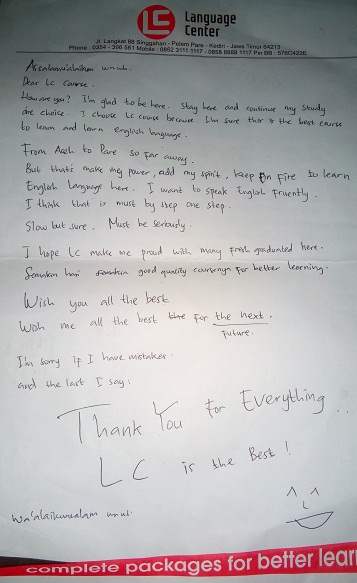 LC
Language
Center
Jl. Langkat 88 Singgahan - Pelem Pare - Kediri - Jawa Timur 64213
Phone : 0354 - 396 561 Mobile : 0852 3111 1117 - 0858 8888 1117 Pin BB :
Dear LC Course.
How are you? I'm glad to be here. Stay here and continue my study
are choice. I choose LC course because I'm sure this is the best course
to learn and learn english language.
From Aceh to Pare so far away.
But that's make my power, add my spirit, keep on fire to learn
English Language here. I want to speak English Fluently.
I think that is must by step one step.
Slow but sure. Must be seriously.
I hope LC make me proud with many fresh graduated here.
good quality for better learning.
Wish you all the best
Wish me all the best for the next.
Future.
I'm sorry if I have mistakes.
and the last I say:
Thank You for Everything..
LC is the Best!
complete packages for better lear